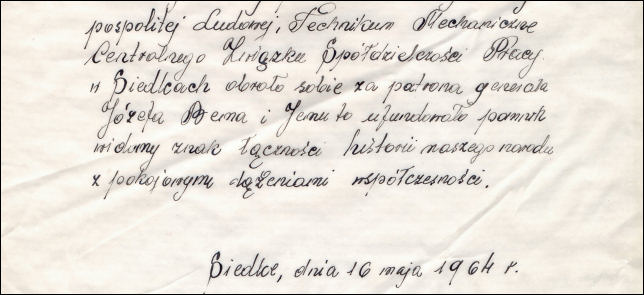 pospolitej Ludowej, Technikum Mechaniczne
Centralnego Związku Spółdzielczości Pracy
w Siedlcach obrało sobie za patrona generała
Józefa Bema i Jemu to ufundowało pomnik
widomy znak łączności historii naszego narodu
z pokojowymi dążeniami współczesności.
Siedlce, dnia 16 maja 1964 r.